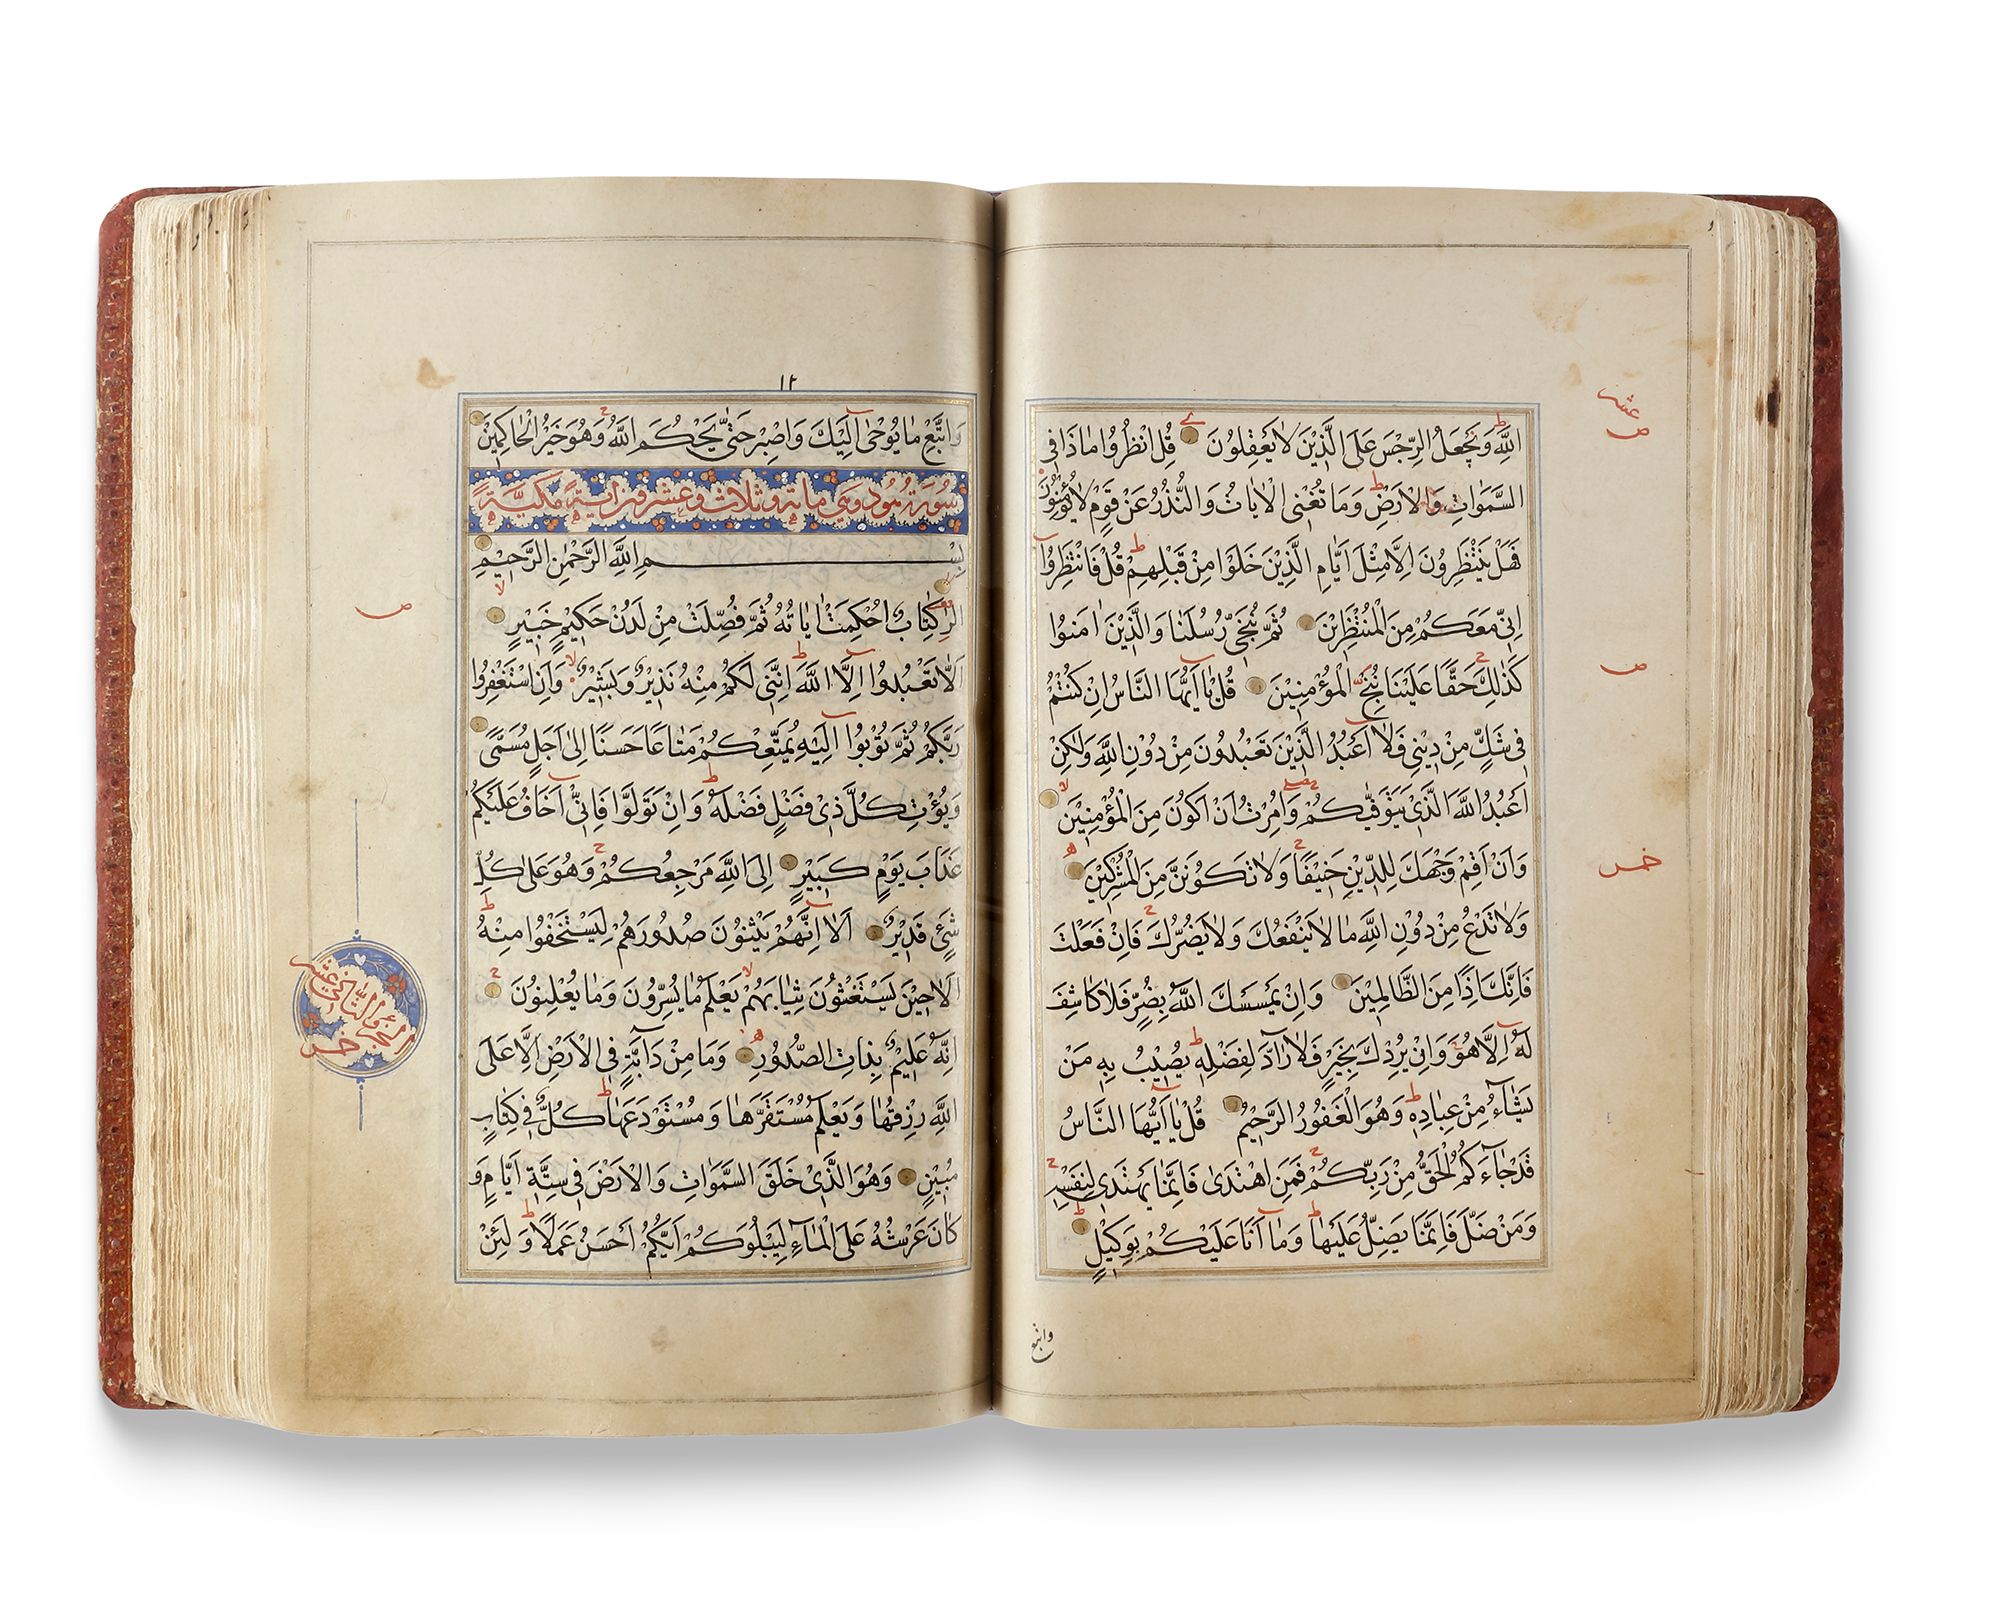 عشر
اللّٰهِ وَيَجْعَلُ الرِّجْسَ عَلَى الَّذِيْنَ لَا يَعْقِلُوْنَ قُلِ انْظُرُوا مَاذَا فِي
السَّمٰوَاتِ وَالْاَرْضِ وَمَا تُغْنِي الْاٰيَاتُ وَالنُّذُرُ عَنْ قَوْمٍ لَا يُؤْمِنُوْنَ
فَهَلْ يَنْتَظِرُوْنَ اِلَّا مِثْلَ اَيَّامِ الَّذِيْنَ خَلَوْا مِنْ قَبْلِهِمْ قُلْ فَانْتَظِرُوا
اِنِّي مَعَكُمْ مِنَ الْمُنْتَظِرِيْنَ ثُمَّ نُنَجِّي رُسُلَنَا وَالَّذِيْنَ اٰمَنُوا
كَذٰلِكَ حَقًّا عَلَيْنَا نُنْجِ الْمُؤْمِنِيْنَ قُلْ يَا اَيُّهَا النَّاسُ اِنْ كُنْتُمْ
فِي شَكٍّ مِنْ دِيْنِي فَلَا اَعْبُدُ الَّذِيْنَ تَعْبُدُوْنَ مِنْ دُوْنِ اللّٰهِ وَلٰكِنْ
اَعْبُدُ اللّٰهَ الَّذِي يَتَوَفّٰيكُمْ وَاُمِرْتُ اَنْ اَكُوْنَ مِنَ الْمُؤْمِنِيْنَ
وَاَنْ اَقِمْ وَجْهَكَ لِلدِّيْنِ حَنِيْفًا وَلَا تَكُوْنَنَّ مِنَ الْمُشْرِكِيْنَ
خمس
وَلَا تَدْعُ مِنْ دُوْنِ اللّٰهِ مَا لَا يَنْفَعُكَ وَلَا يَضُرُّكَ فَاِنْ فَعَلْتَ
فَاِنَّكَ اِذًا مِنَ الظَّالِمِيْنَ وَاِنْ يَمْسَسْكَ اللّٰهُ بِضُرٍّ فَلَا كَاشِفَ
لَهُ اِلَّا هُوَ وَاِنْ يُرِدْكَ بِخَيْرٍ فَلَا رَآدَّ لِفَضْلِهِ يُصِيْبُ بِهِ مَنْ
يَشَآءُ مِنْ عِبَادِهِ وَهُوَ الْغَفُوْرُ الرَّحِيْمُ قُلْ يَا اَيُّهَا النَّاسُ
قَدْ جَآءَكُمُ الْحَقُّ مِنْ رَبِّكُمْ فَمَنِ اهْتَدٰى فَاِنَّمَا يَهْتَدِي لِنَفْسِهِ
وَمَنْ ضَلَّ فَاِنَّمَا يَضِلُّ عَلَيْهَا وَمَا اَنَا عَلَيْكُمْ بِوَكِيْلٍ
واتبع
١٢
وَاتَّبِعْ مَا يُوْحٰى اِلَيْكَ وَاصْبِرْ حَتّٰى يَحْكُمَ اللّٰهُ وَهُوَ خَيْرُ الْحَاكِمِيْنَ
سُوْرَةُ هُوْد وهي مائة وثلاث وعشرون اية مَكِّيَّة
بِسْمِ اللّٰهِ الرَّحْمٰنِ الرَّحِيْمِ
الٓر كِتَابٌ اُحْكِمَتْ اٰيَاتُهُ ثُمَّ فُصِّلَتْ مِنْ لَدُنْ حَكِيْمٍ خَبِيْرٍ
اَلَّا تَعْبُدُوا اِلَّا اللّٰهَ اِنَّنِي لَكُمْ مِنْهُ نَذِيْرٌ وَبَشِيْرٌ وَاَنِ اسْتَغْفِرُوا
رَبَّكُمْ ثُمَّ تُوْبُوا اِلَيْهِ يُمَتِّعْكُمْ مَتَاعًا حَسَنًا اِلٰى اَجَلٍ مُسَمًّى
وَيُؤْتِ كُلَّ ذِي فَضْلٍ فَضْلَهُ وَاِنْ تَوَلَّوْا فَاِنِّي اَخَافُ عَلَيْكُمْ
عَذَابَ يَوْمٍ كَبِيْرٍ اِلَى اللّٰهِ مَرْجِعُكُمْ وَهُوَ عَلٰى كُلِّ
شَيْءٍ قَدِيْرٌ اَلَا اِنَّهُمْ يَثْنُوْنَ صُدُوْرَهُمْ لِيَسْتَخْفُوا مِنْهُ
اَلَا حِيْنَ يَسْتَغْشُوْنَ ثِيَابَهُمْ يَعْلَمُ مَا يُسِرُّوْنَ وَمَا يُعْلِنُوْنَ
اِنَّهُ عَلِيْمٌ بِذَاتِ الصُّدُوْرِ وَمَا مِنْ دَابَّةٍ فِي الْاَرْضِ اِلَّا عَلَى
الجزؤ الثاني عشر
خمس
اللّٰهِ رِزْقُهَا وَيَعْلَمُ مُسْتَقَرَّهَا وَمُسْتَوْدَعَهَا كُلٌّ فِي كِتَابٍ
مُبِيْنٍ وَهُوَ الَّذِي خَلَقَ السَّمٰوَاتِ وَالْاَرْضَ فِي سِتَّةِ اَيَّامٍ وَ
كَانَ عَرْشُهُ عَلَى الْمَآءِ لِيَبْلُوَكُمْ اَيُّكُمْ اَحْسَنُ عَمَلًا وَلَئِنْ